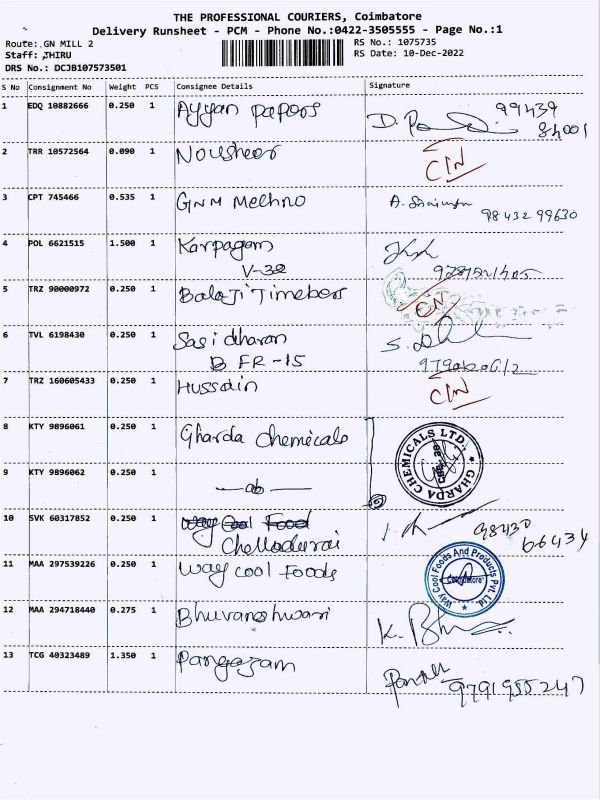 THE PROFESSIONAL COURIERS, Coimbatore
Delivery Runsheet - PCM - Phone No.:0422-3505555 - Page No.:1
Route: GN MILL 2
RS No.: 1075735
Staff: THIRU
RS Date: 10-Dec-2022
DRS No.: DCJB107573501
S No Consignment No Weight PCS Consignee Details Signature
1 EDQ 10882666 0.250 1 Ayyan papers 99439
84001
2 TRR 10572564 0.090 1 Nousheer CIN
3 CPT 745466 0.535 1 GNM Mechno
98432 99630
4 POL 6621515 1.500 1 Karpagam
V-32
5 TRZ 90000972 0.250 1 Balaji Timebers
6 TVL 6198430 0.250 1 Sasidharan
B FR-15
7 TRZ 160605433 0.250 1 Hussain CIN
8 KTY 9896061 0.250 1 Gharda chemicals
GHARDA CHEMICALS LTD.,
CBE. 20
9 KTY 9896062 0.250 1 —ab—
10 SVK 60317852 0.250 1 Way Cool Food
Chelladurai
98430
66434
11 MAA 297539226 0.250 1 Way cool Foods
Way Cool Foods And Products Pvt. Ltd.
Coimbatore
12 MAA 294718440 0.275 1 Bhuvaneshwari
13 TCG 40323489 1.350 1 Pangajam
9791955247